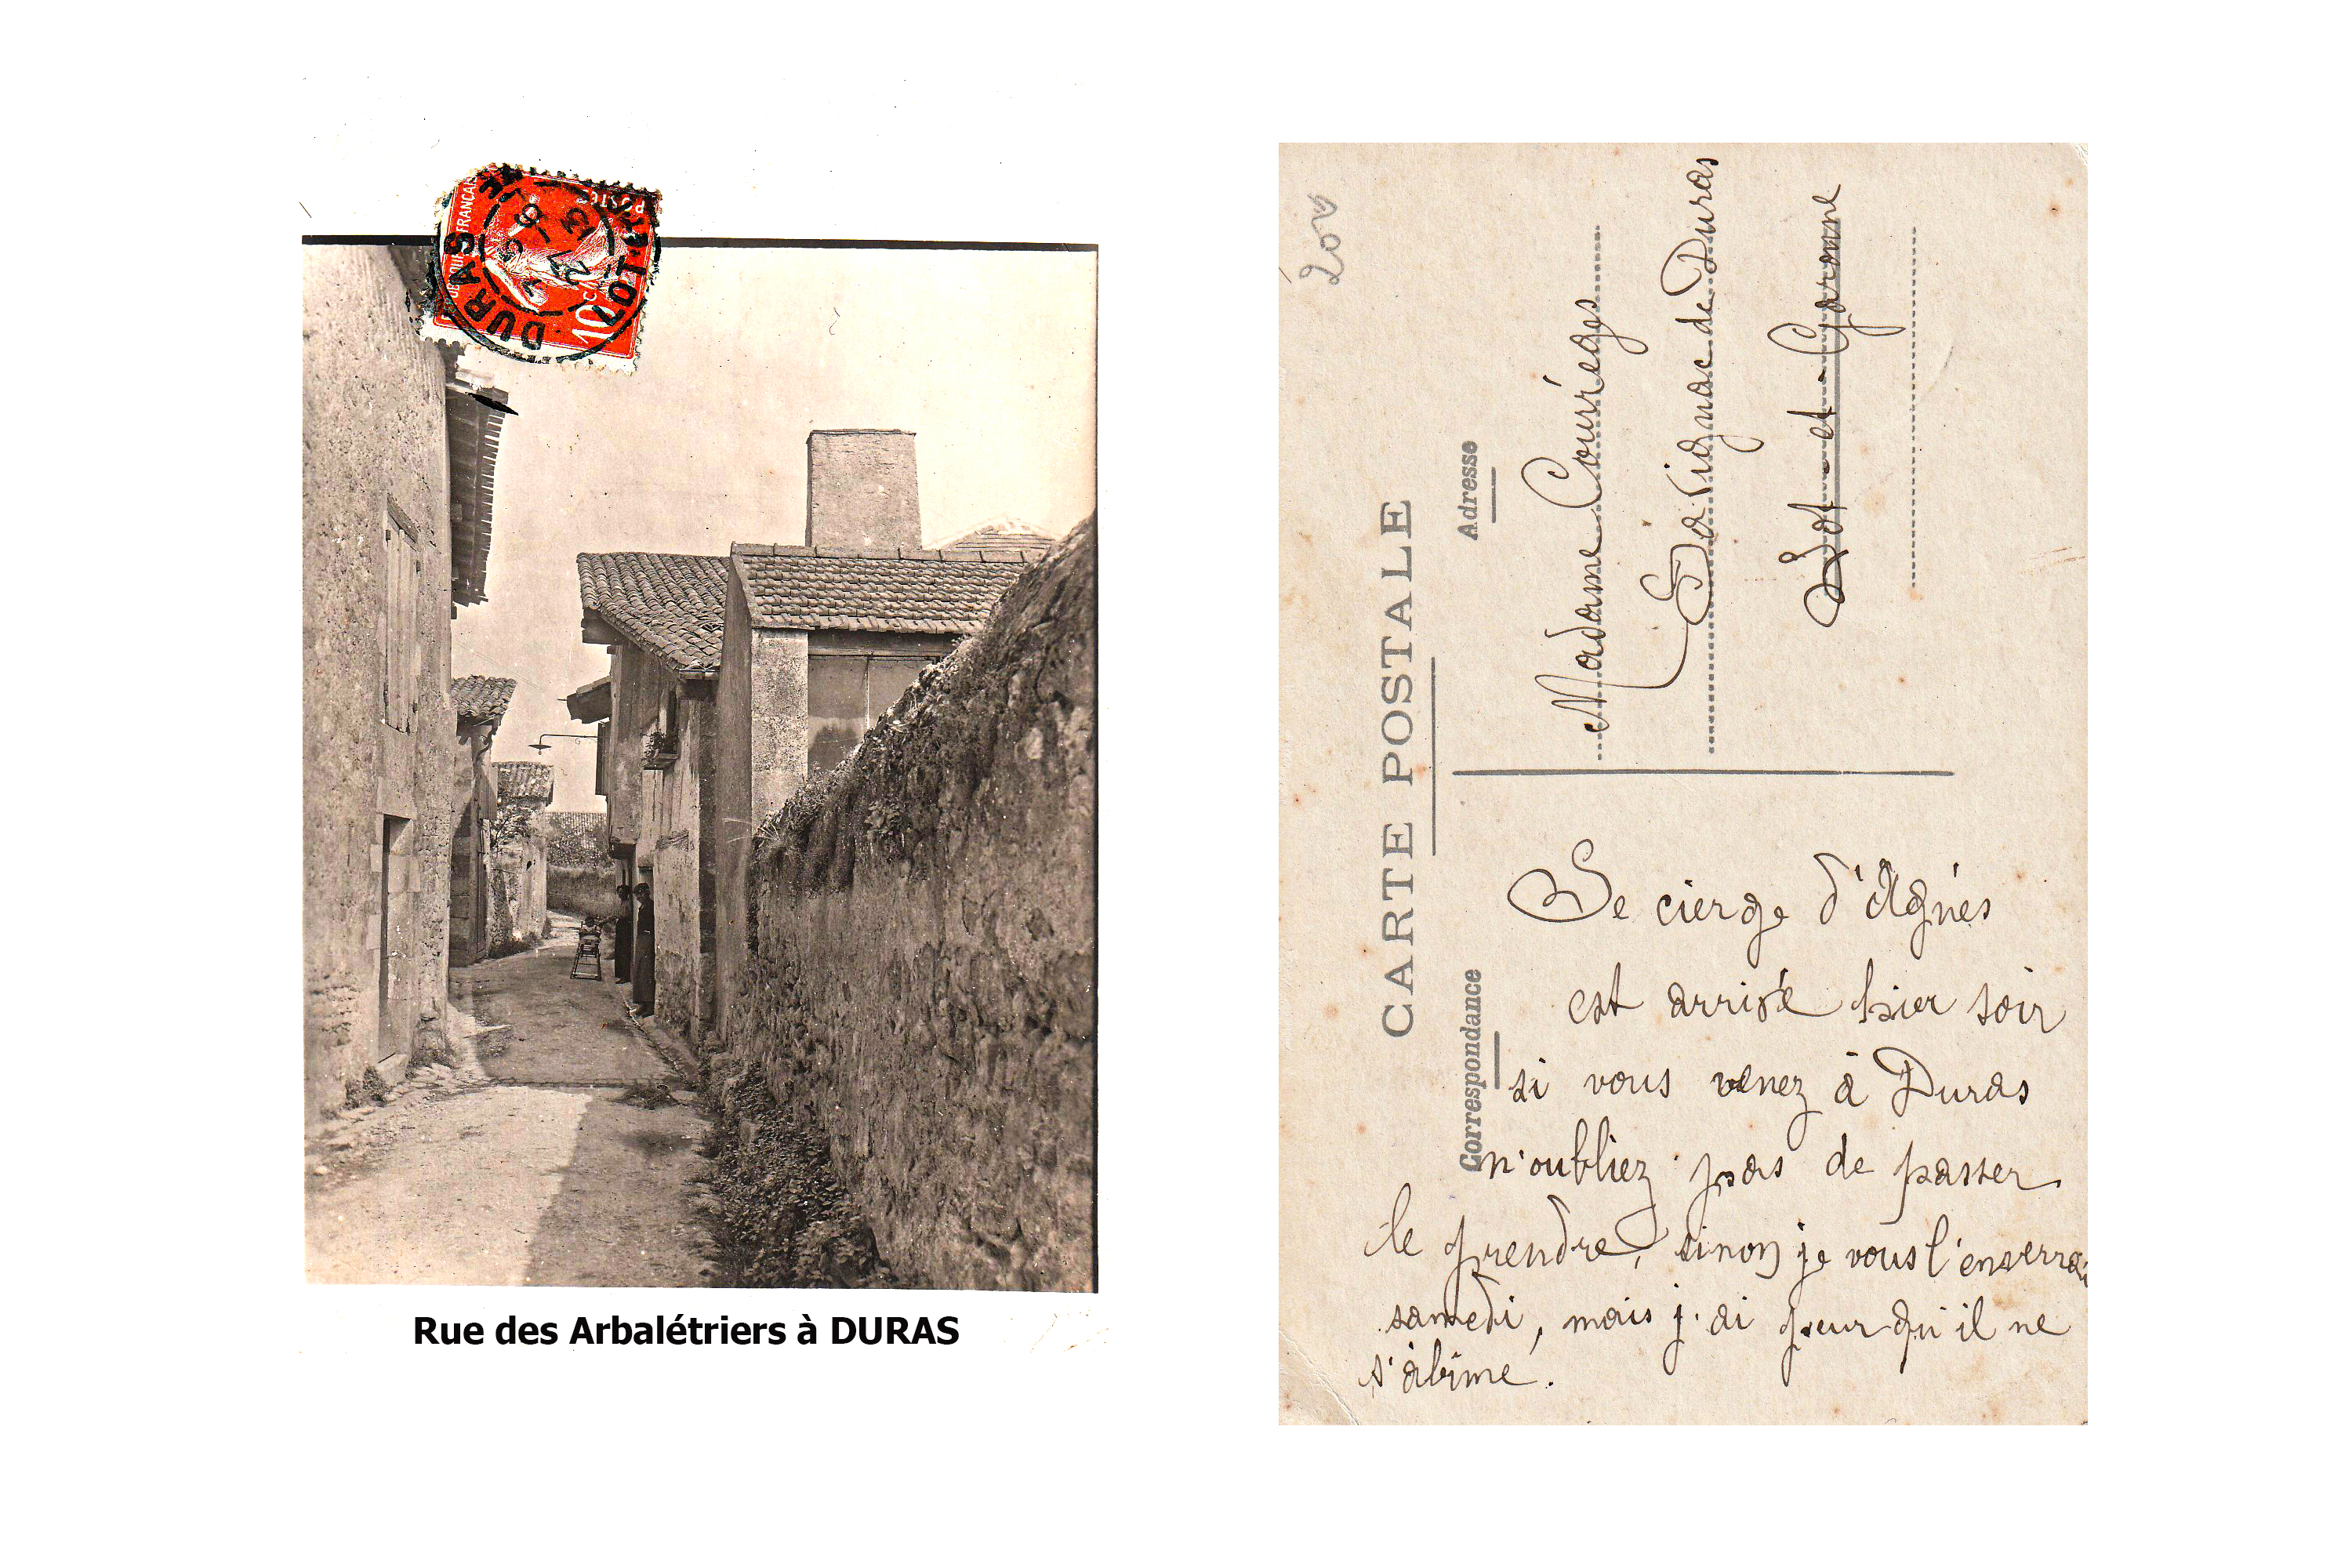 FRANÇAISE
POSTES
10 c
DURAS
LOT-
Rue des Arbalétriers à DURAS
200
CARTE POSTALE
Correspondance
Adresse
Madame Courrèges
Savignac de Duras
Lot-et-Garonne
Le cierge d'Agnès
est arrivé hier soir
si vous venez à Duras
n'oubliez pas de passer
le prendre, sinon je vous l'enverrai
samedi, mais j'ai peur qu'il ne
s'abîme.